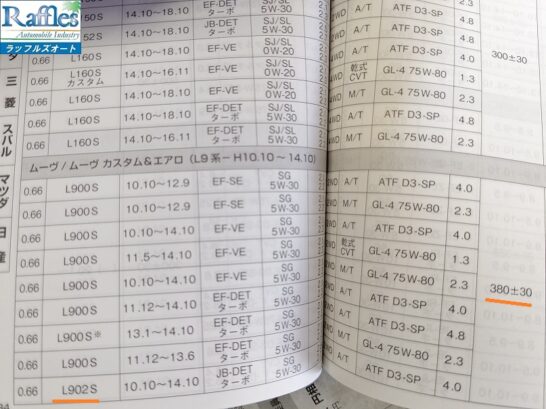 Raffles
Automobile Industry
ラッフルズオート
三
菱
スバル
マツダ
日
産
14.10~18.10 EF-DET ターボ SJ/SL 5W-30
14.10~18.10 JB-DET ターボ SJ/SL 5W-30 ATF D3-SP 4.8
0.66 L160S 14.10~18.10 EF-VE SJ/SL 0W-20 A/T ATF D3-SP 4.0 300±30
0.66 L160S カスタム 14.10~16.11 EF-VE SJ/SL 0W-20 乾式CVT GL-4 75W-80 2.3
0.66 L160S 14.10~18.10 EF-VE SJ/SL 0W-20 M/T GL-4 75W-80 2.3
0.66 L160S 14.10~18.10 EF-DET ターボ SJ/SL 5W-30 A/T ATF D3-SP 4.8
0.66 L160S 14.10~16.11 EF-DET ターボ SJ/SL 5W-30 M/T GL-4 75W-80 2.3
ムーヴ/ムーヴ カスタム&エアロ (L9系-H10.10~14.10)
0.66 L900S 10.10~12.9 EF-SE SG 5W-30 2WD A/T ATF D3-SP 4.0
0.66 L900S 10.10~12.9 EF-SE SG 5W-30 2WD M/T GL-4 75W-80 2.3
0.66 L900S 10.10~14.10 EF-VE SG 5W-30 2WD A/T ATF D3-SP 4.0
0.66 L900S 11.5~14.10 EF-VE SG 5W-30 2WD 乾式CVT GL-4 75W-80 2.3
0.66 L900S 10.10~14.10 EF-VE SG 5W-30 2WD M/T GL-4 75W-80 2.3 380±30
0.66 L900S 11.12~14.10 EF-DET ターボ SG 5W-30 A/T ATF D3-SP 4.0
0.66 L900S※ 13.1~14.10 EF-DET ターボ SG 5W-30 A/T ATF D3-SP 4.8
0.66 L900S 11.12~13.6 EF-DET ターボ SG 5W-30 M/T GL-4 75W-80 2.3
0.66 L902S 10.10~14.10 JB-DET ターボ SG 5W-30 A/T ATF D3-SP 4.0